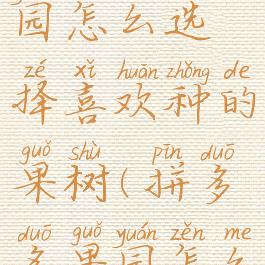 园怎么选
zé xǐ huān zhǒng de
择喜欢种的
guǒ shù pīn duō
果树(拼多
duō guǒ yuán zěn me
多果园怎么